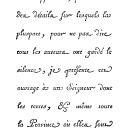 des détails sur lesquels la
plupart, pour ne pas dire
tous les auteurs ont gardé le
silence, je présente cet
ouvrage à un Seigneur dont
les terres, & même toute
la Province où elles sont